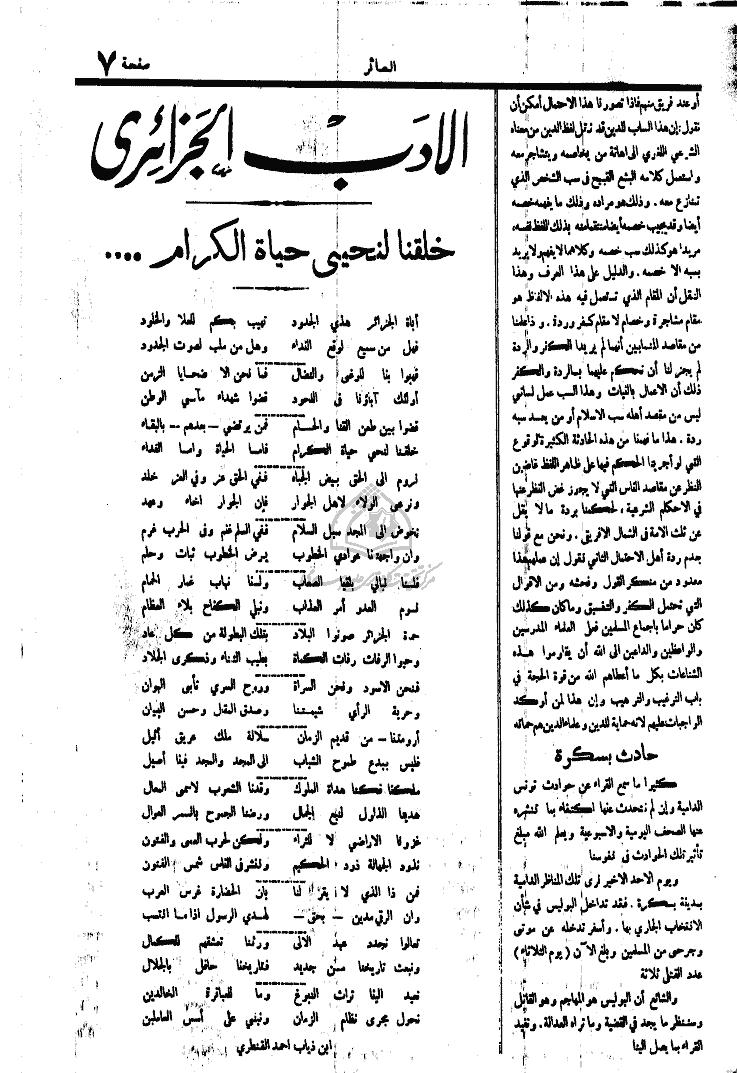 صفحة ٧
البصائر
أو عند فريق منهم فاذا تصورنا هذا الاحتمال أمكن أن
نقول: إن هذا الساب للدين قد تنقل لفظ الدين من معناه
الشرعي اللغوي الى اهانة من يخاصمه ويتشاجر معه
واستعمل كلامه البشع القبيح في سب الشخص الذي
تنازع معه. وذلك هو مراده وذلك ما يفهمه خصمه
أيضا وقد يجيب خصمه أيضا منتقما منه بذلك اللفظ نفسه،
مريدا هو كذلك سب خصمه وكلاهما لا يفهم ولا يريد
بسبه الا خصمه. والدليل على هذا العرف وهذا
النقل أن المقام الذي تستعمل فيه هذه الالفاظ هو
مقام مشاجرة وخصام لا مقام كفر وردة. وذا علمنا
من مقاصد المتسابين أنهما لم يريدا الكفر والردة
لم يجز لنا أن نحكم عليهما بالردة والكفر
ذلك أن الاعمال بالنيات وهذا السب عمل لساني
ليس من مقصد أهله سب الاسلام أو من يعمد سبه
ردة. هذا ما فهمنا من هذه الحادثة الكثيرة الوقوع
التي لو أجرينا الحكم فيها على ظاهر اللفظ غاضين
النظر عن مقاصد الناس التي لا يجوز غض النظر عنها
في الاحكام الشرعية، لحكمنا بردة مالا يقل
عن ثلث الامة في الشمال الافريقي. ونحن مع قولنا
بعدم ردة أهل الاحتمال الثاني نقول إن عملهم هذا
معدود من منكر القول وفحشه ومن الاقوال
التي تحتمل الكفر والتفسيق وما كان كذلك
كان حراما باجماع المسلمين فعلى العلماء المدرسين
والواعظين والداعين الى الله أن يقاوموا هذه
الشناعات بكل ما أعطاهم الله من قوة الحجة في
باب الترغيب والترهيب وإن هذا لمن أوكد
الواجبات عليهم لانه حماية للدين وعلماء الدين هم حماته
حادث بسكرة
كثيرا ما سمع القراء عن حوادث تونس
الدامية وإن لم نتحدث عنها اكتفاء بما تنشره
عنها الصحف اليومية والاسبوعية ويعلم الله مبلغ
تأثير تلك الحوادث في نفوسنا
ويوم الاحد الاخير نرى تلك المناظر الدامية
بمدينة بسكرة. فقد تداخل البوليس في شأن
الانتخاب الجاري بها. وأسفر تدخله عن موتى
وجرحى من المسلمين وبلغ الآن (يوم الثلاثاء)
عدد القتلى ثلاثة
والشائع أن البوليس هو المهاجم وهو القاتل
وسننظر ما يجد في القضية وما تراه العدالة. ونفيد
القراء بما يصل الينا
الادب الجزائري
خلقنا لنحيى حياة الكرام ....
أباة الجزائر هذي الجدود تهيب بكم للعلا والخلود
فهل من سميع لوقع النداء وهل من ملب لصوت الجدود
فهبوا بنا للوغى والنضال فما نحن الا ضحايا الزمن
أولئك آباؤنا في اللحود قضوا شهداء مآسي الوطن
قضوا بين طعن القنا والحسام فمن يرتضي – بعدهم – بالبقاء
خلقنا لنحيى حياة الكرام فاما الحياة واما الفناء
نروم الى الحق بيض الجباه ففي الحق عز وفي العز خلد
ونرعى الولاء لاهل الجوار فإن الجوار اخاء وعهد
نخوض الى المجد سبل السلام ففي السلم غنم وفي الحرب غرم
وأن واجهتنا عوادي الخطوب يرض الخطوب ثبات وحلم
فلسنا نبالي بلقيا الصعاب ولسنا نهاب غمار الحمام
نسوم العدو أمر العذاب ونبلي الكفاح بلاء العظام
حمة الجزائر صونوا البلاد بتلك البطولة من كل عاد
وحيوا الرفات رفات الكماة بطيب الثناء وذكرى الجلاد
فنحن الاسود ونحن السراة وروح السري تأبى الهوان
وحرية الرأي شيمتنا وصدق المقال وحسن البيان
أرومتنا – من قديم الزمان سلالة ملك عريق أثيل
فليس ببدع طموح الشباب الى المجد والمجد فينا أصيل
ملكنا فكنا هداة الملوك وقدنا الشعوب لاسمى المعال
هدينا الذلول لنبع الجمال ورضنا الجموح بالسمر العوال
غزونا الاراضي لا للثراء ولكن لحرب العمى والفتون
نذود الجهالة ذود الحكيم وننشر في الناس شمس الفنون
فمن ذا الذي لا يقر لنا بان الحضارة غرس العرب
وان الرقي مدين – بحق – لهدي الرسول اذا ما انتسب
تعالوا نجدد عهد الالى ورثنا تعشقهم للكمال
ونبعث تاريخنا من جديد فتاريخنا حافل بالجلال
نعيد الينا تراث النبوغ وما للعباقرة الخالدين
نحول مجرى نظام الزمان ونبني على أسس العاملين
ابن ذياب احمد القنطري